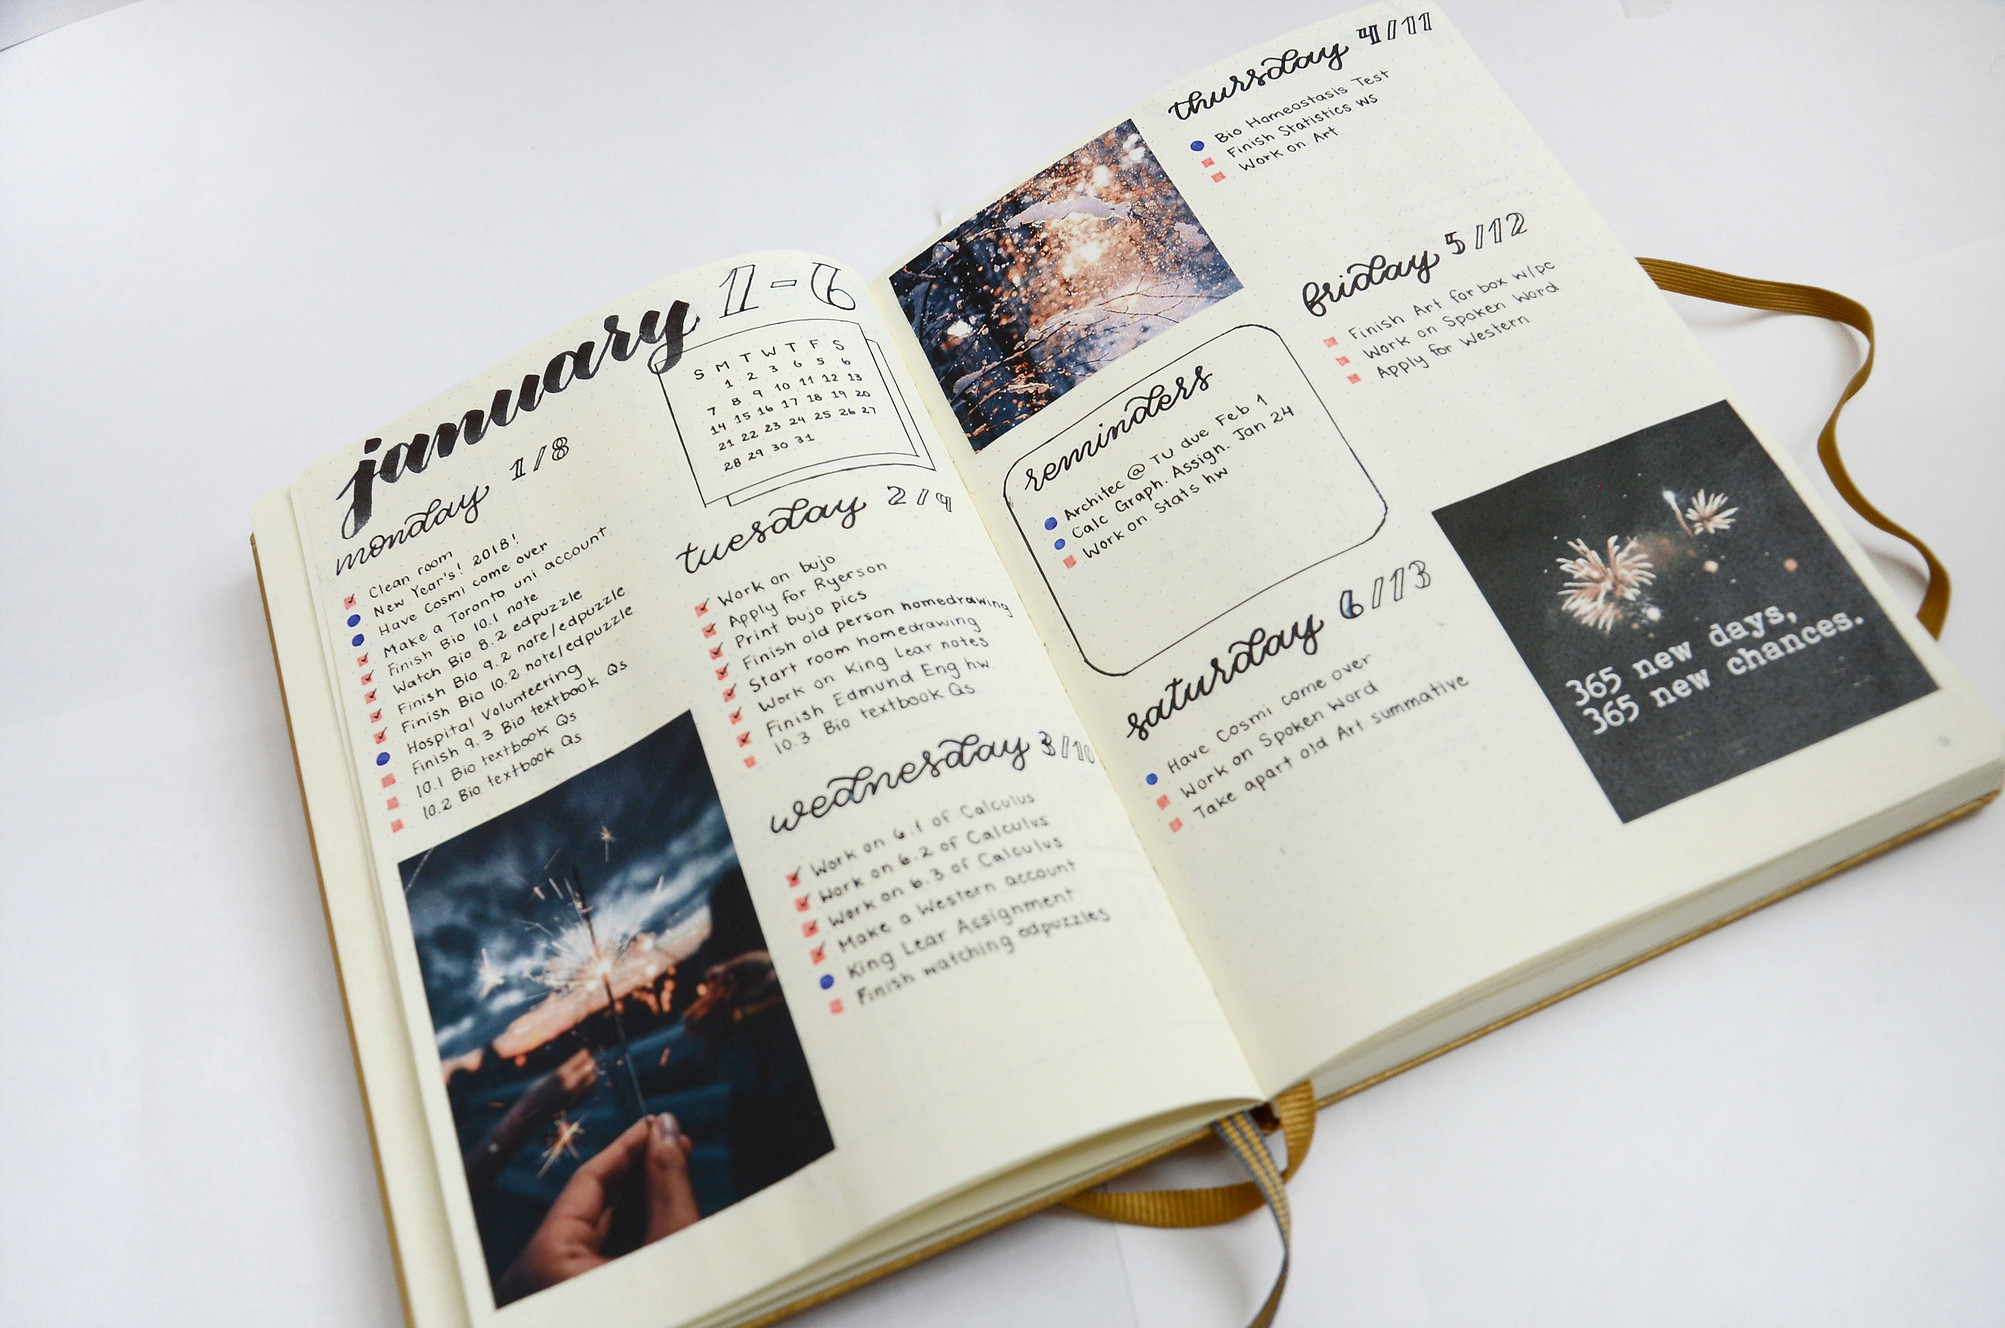 january 1-6
S M T W T F S
1 2 3 4 5 6
7 8 9 10 11 12 13
14 15 16 17 18 19 20
21 22 23 24 25 26 27
28 29 30 31
monday 1/8
Clean room
New Year's! 2018!
Have Cosmi come over
Make a Toronto uni account
Finish Bio 10.1 note
Watch Bio 8.2 edpuzzle
Finish Bio 9.2 note/edpuzzle
Finish Bio 10.2 note/edpuzzle
Hospital Volunteering
Finish 9.3 Bio textbook Qs
10.1 Bio textbook Qs
10.2 Bio textbook Qs
tuesday 2/9
Work on bujo
Apply for Ryerson
Print bujo pics
Finish old person homedrawing
Start room homedrawing
Work on King Lear notes
Finish Edmund Eng hw
10.3 Bio textbook Qs
wednesday 3/10
Work on 6.1 of Calculus
Work on 6.2 of Calculus
Work on 6.3 of Calculus
Make a Western account
King Lear Assignment
Finish watching edpuzzles
thursday 4/11
Bio Homeostasis Test
Finish Statistics ws
Work on Art
friday 5/12
Finish Art for box w/pc
Work on Spoken Word
Apply for Western
reminders
Architec @ TU due Feb 1
Calc Graph. Assign. Jan 24
Work on Stats hw
saturday 6/13
Have Cosmi come over
Work on Spoken Word
Take apart old Art summative
365 new days,
365 new chances.